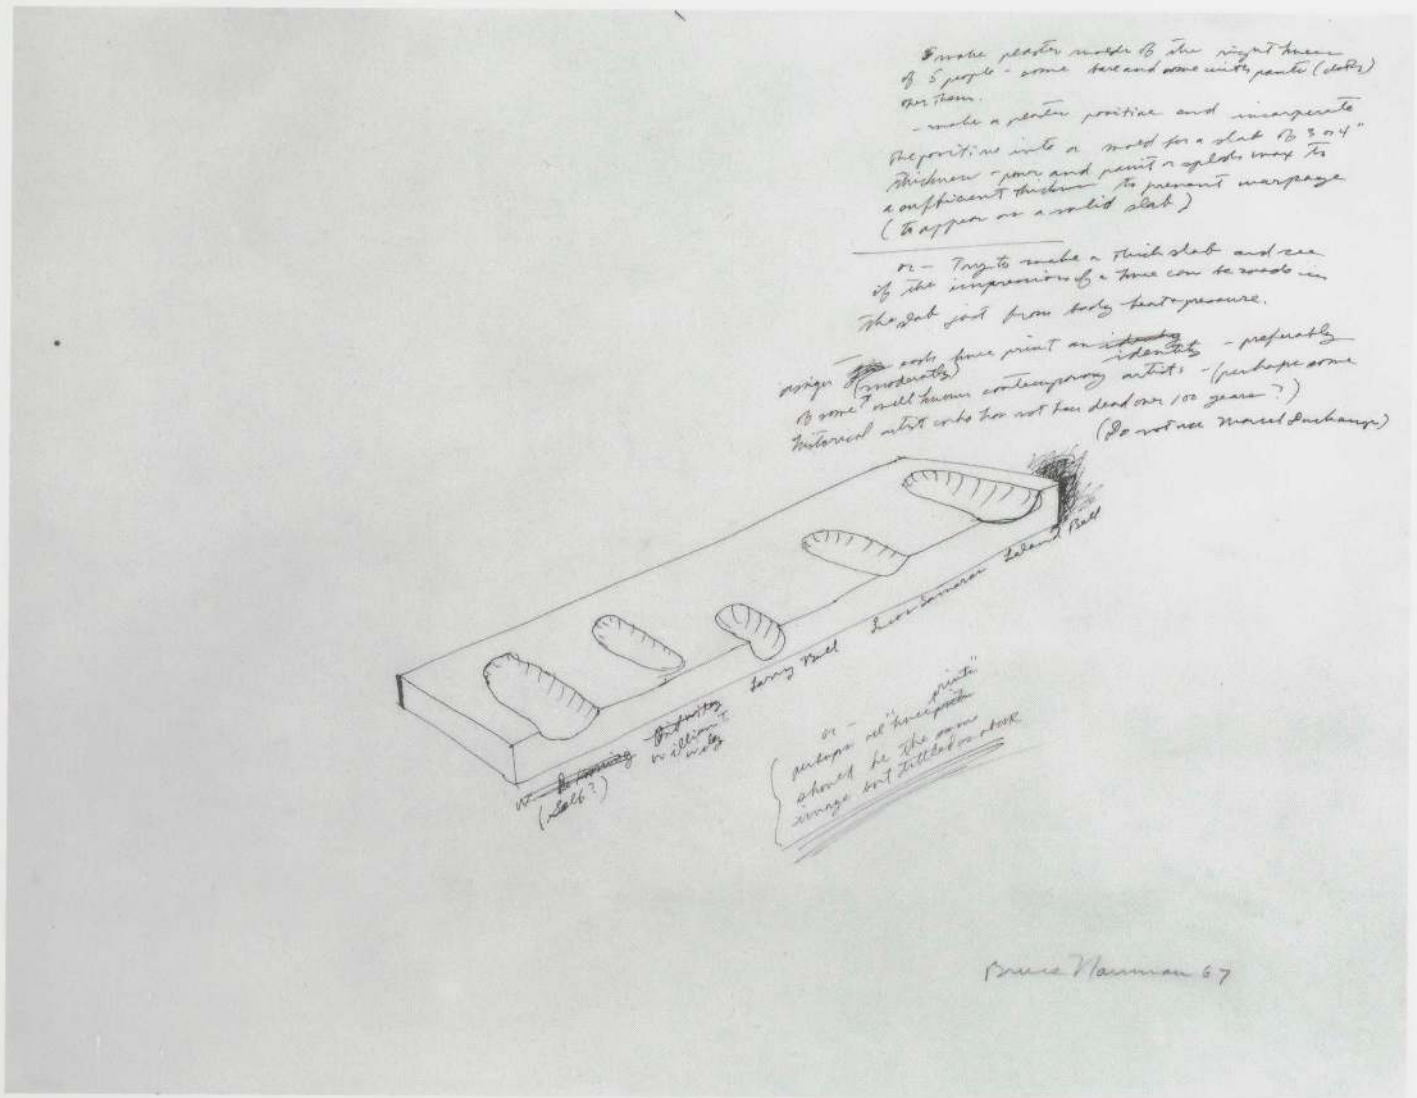 make plaster molds of the right knees
of 5 people - some bare and some with pants (cloth)
over them.
- make a plaster positive and incorperate
the positive into a mold for a slab of 3 or 4"
thickness - pour and paint or splosh wax to
a sufficient thickness to prevent warpage
(to appear as a solid slab)
or - Try to make a thick slab and see
if the impression of a knee can be made in
the slab just from body heat & pressure.
- assign each knee print an identity - preferably
of some (moderately) well known contemporary artists - (perhaps some
historical artist who has not been dead over 100 years?)
(Do not use Marcel Duchamp)
Leland Bell
Lucas Samaras
Larry Bell
William T
Wiley
W. De Kooning
(Self?)
or -
perhaps all "knee prints"
should be the same
image but titled as above
Bruce Nauman 67